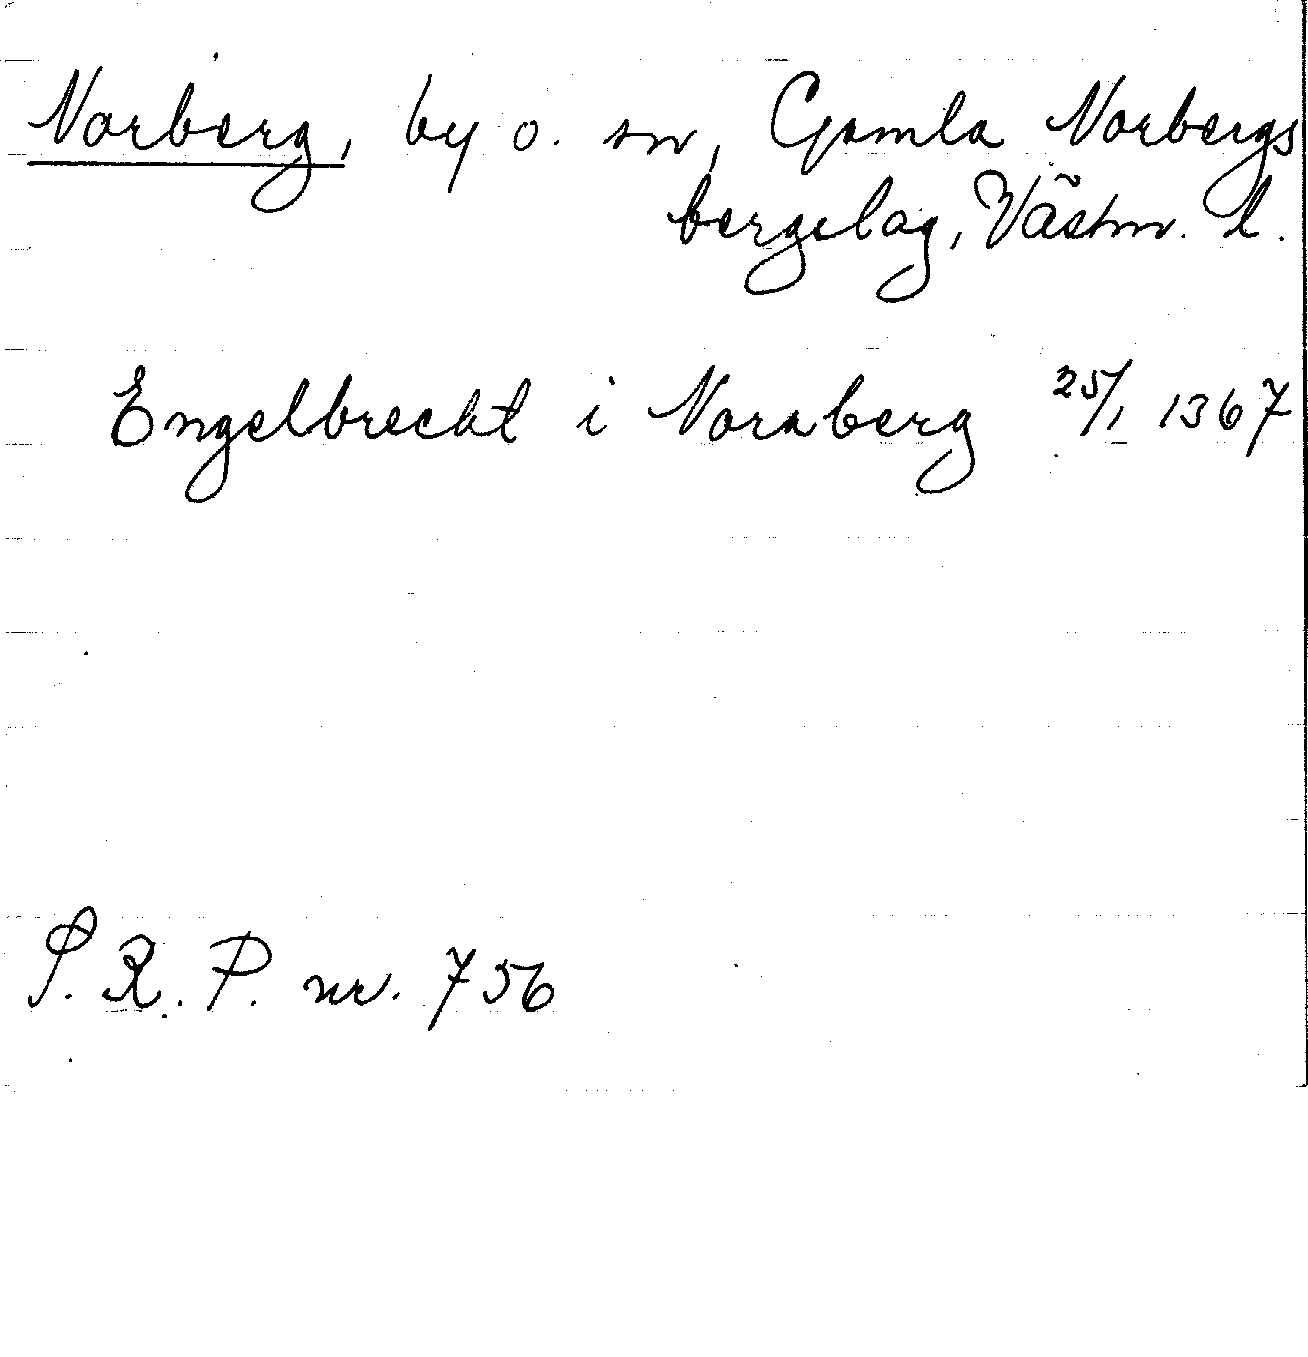 Norberg, by o. sn, Gamla Norbergs
bergslag, Västm. l.
Engelbrecht i Noraberg 25/1 1367
S. R. P. nr. 756